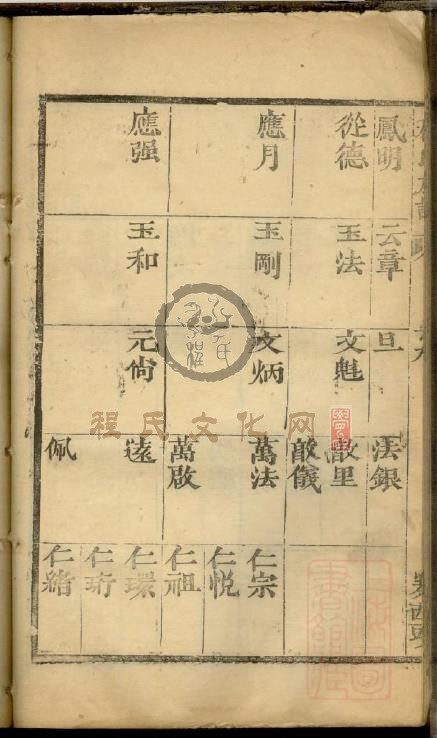 鳳明
云章
旦
法銀
從德
玉法
文魁
啟里
啟儀
應月
玉剛
文炳
萬法
仁宗
仁悅
萬啟
仁祖
應强
玉和
元尙
遠
仁環
仁珩
佩
仁緒
程氏文化网